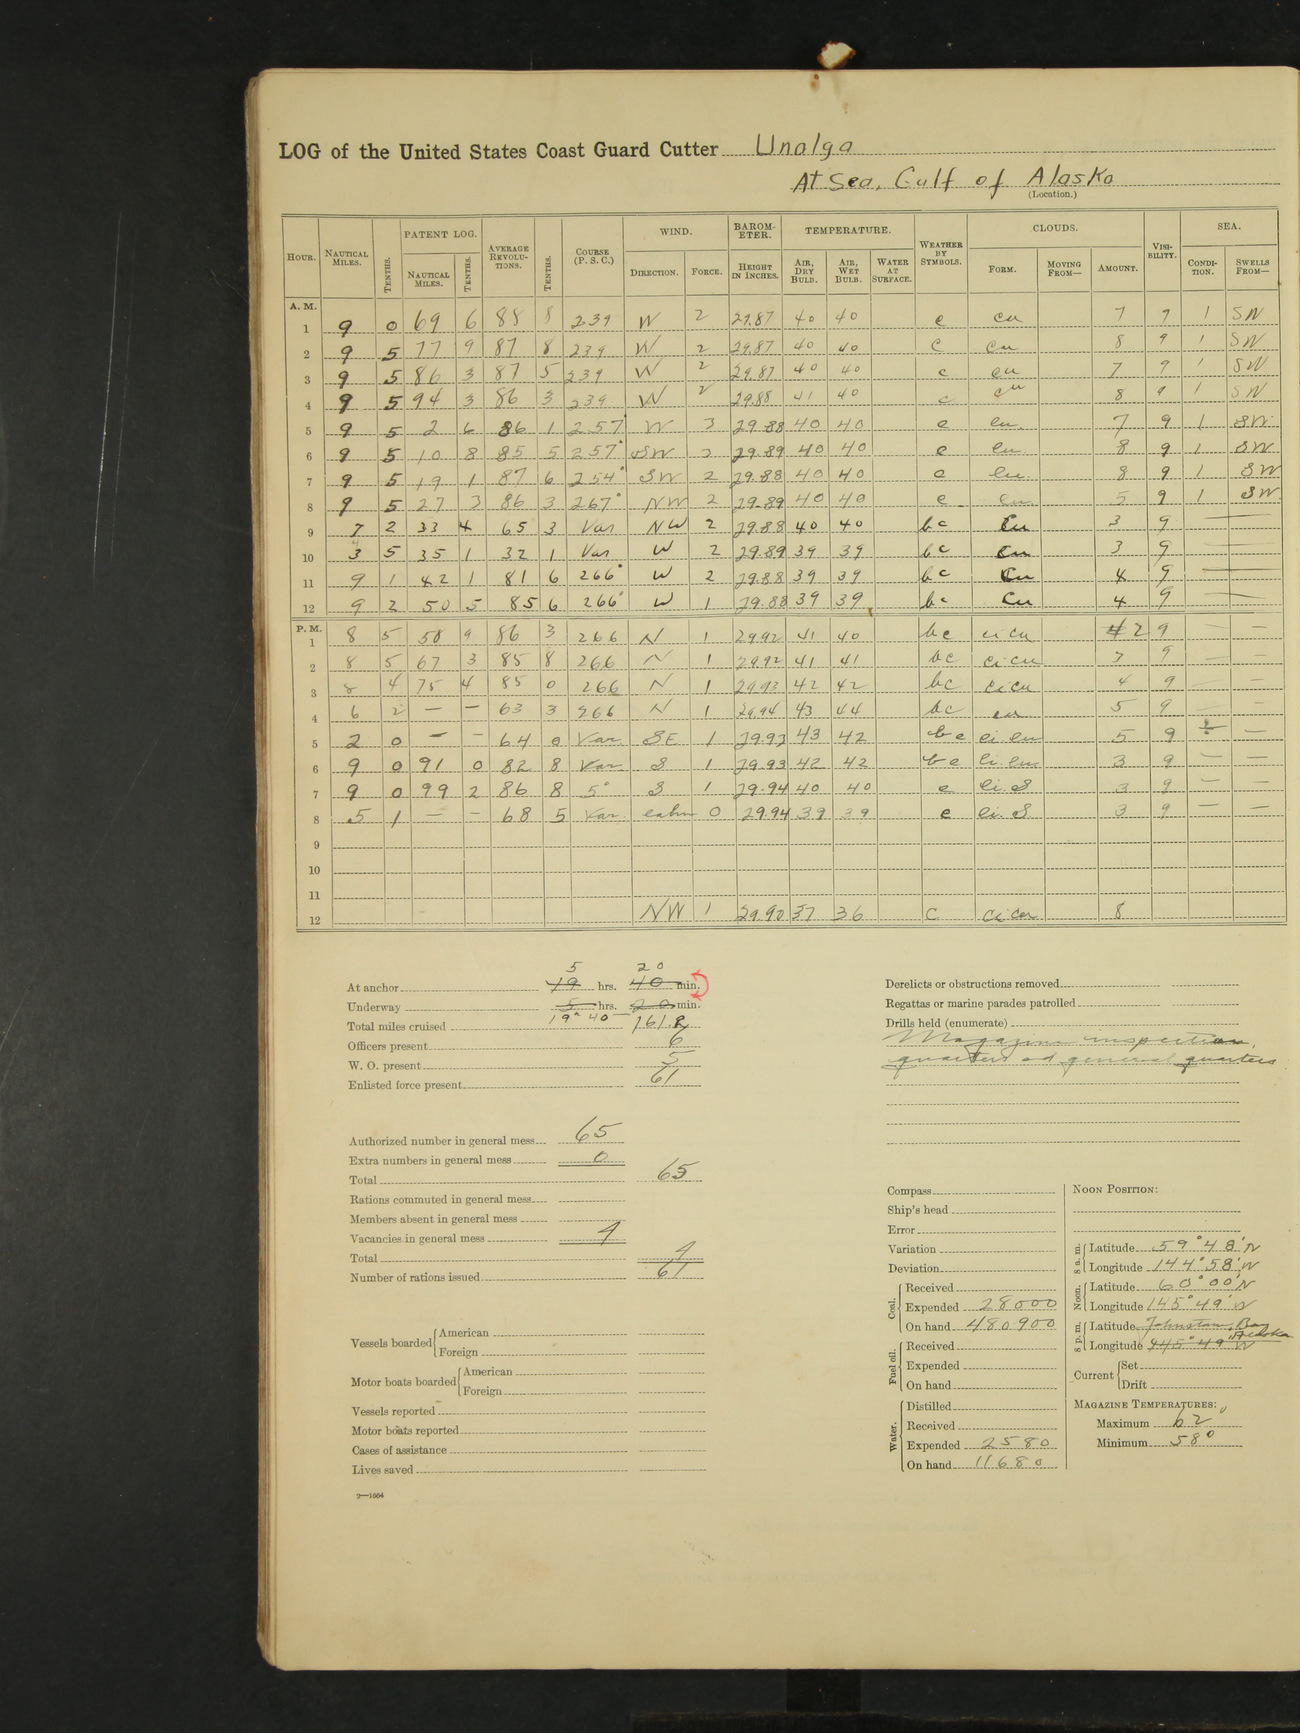 LOG of the United States Coast Guard Cutter Unalga
At Sea, Gulf of Alaska
(Location.)
HOUR. NAUTICAL MILES. TENTHS. PATENT LOG. NAUTICAL MILES. TENTHS. AVERAGE REVOLUTIONS. TENTHS. COURSE (P. S. C.) WIND. DIRECTION. FORCE. BAROMETER. HEIGHT IN INCHES. TEMPERATURE. AIR, DRY BULB. AIR, WET BULB. WATER AT SURFACE. WEATHER BY SYMBOLS. CLOUDS. FORM. MOVING FROM— AMOUNT. VISIBILITY. SEA. CONDITION. SWELLS FROM—
A. M.
1 9 0 69 6 88 8 239 W 2 29.87 40 40 c cu 7 7 1 SW
2 9 5 77 9 87 8 239 W 2 29.87 40 40 c cu 8 9 1 SW
3 9 5 86 3 87 5 239 W 2 29.87 40 40 c cu 7 9 1 SW
4 9 5 94 3 86 3 239 W 2 29.88 41 40 c cu 8 9 1 SW
5 9 5 2 6 86 1 257° W 3 29.88 40 40 c cu 7 9 1 SW
6 9 5 10 8 85 5 257° SW 2 29.89 40 40 c cu 8 9 1 SW
7 9 5 19 1 87 6 254° SW 2 29.88 40 40 c cu 8 9 1 SW
8 9 5 27 3 86 3 267° NW 2 29.89 40 40 c cu 5 9 1 SW
9 7 2 33 4 65 3 Var NW 2 29.88 40 40 bc Cu 3 9 —
10 3 5 35 1 32 1 Var W 2 29.89 39 39 bc Cu 3 9 —
11 9 1 42 1 81 6 266° W 2 29.88 39 39 bc Cu 4 9 —
12 9 2 50 5 85 6 266° W 1 29.88 39 39 bc Cu 4 9 —
P. M.
1 8 5 58 9 86 3 266 N 1 29.92 41 40 bc ci cu 2 9 — —
2 8 5 67 3 85 8 266 N 1 29.92 41 41 bc ci cu 3 9 — —
3 8 4 75 4 85 0 266 N 1 29.93 42 42 bc ci cu 4 9 — —
4 6 2 — — 63 3 266 N 1 29.94 43 44 bc cu 5 9 — —
5 2 0 — — 64 0 Var SE 1 29.93 43 42 bc ci cu 5 9 — —
6 9 0 91 0 82 8 Var S 1 29.93 42 42 bc ci cu 3 9 — —
7 9 0 99 2 86 8 5° S 1 29.94 40 40 c ci. S 3 9 — —
8 5 1 — — 68 5 Var. calm 0 29.94 39 39 c ci. S 3 9 — —
9
10
11
12 NW 1 29.90 37 36 C ci cu 8
5 20
At anchor 19 hrs. 40 min.
Underway 5 hrs. 20 min.
19° 40
Total miles cruised 161.2
Officers present 6
W. O. present 5
Enlisted force present 61
Authorized number in general mess 65
Extra numbers in general mess 0
Total 65
Rations commuted in general mess
Members absent in general mess
Vacancies in general mess 4
Total 4
Number of rations issued 61
Vessels boarded American
Foreign
Motor boats boarded American
Foreign
Vessels reported
Motor boats reported
Cases of assistance
Lives saved
2—1664
Derelicts or obstructions removed
Regattas or marine parades patrolled
Drills held (enumerate)
Magazine inspection,
quarters ad general quarters
Compass
Ship's head
Error
Variation
Deviation
Coal. Received
Expended 28000
On hand 480900
Fuel oil. Received
Expended
On hand
Water. Distilled
Received
Expended 2580
On hand 11680
NOON POSITION:
8 a. m. Latitude 59° 48' N
Longitude 144° 58' W
Noon. Latitude 60° 00' N
Longitude 145° 49' W
8 p. m. Latitude Johnstone Bay
Alaska
Longitude 145° 49' W
Current Set
Drift
MAGAZINE TEMPERATURES:
Maximum 62°
Minimum 58°